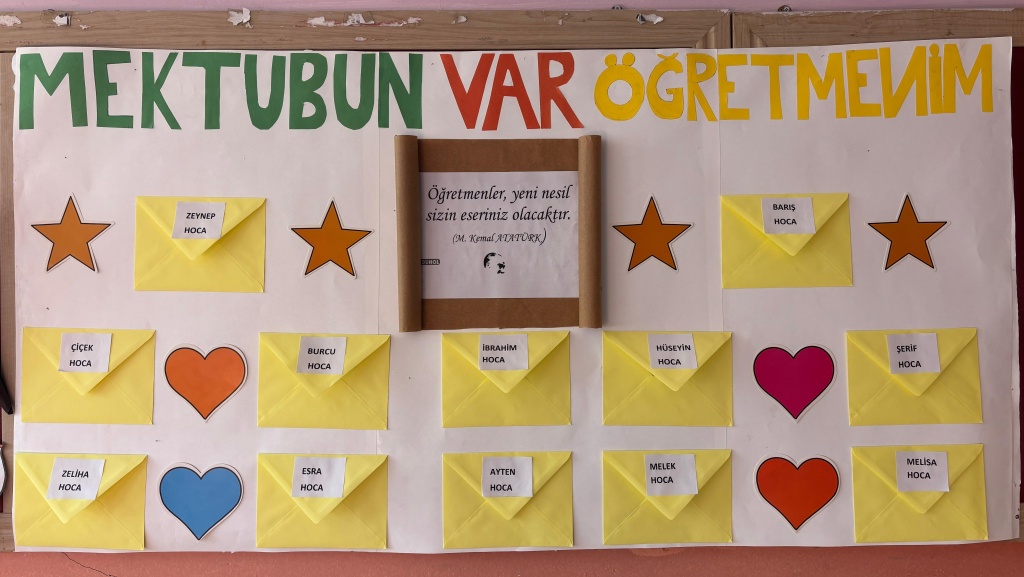 MEKTUBUN VAR ÖĞRETMENİM
Öğretmenler, yeni nesil
sizin eseriniz olacaktır.
(M. Kemal ATATÜRK)
ZEYNEP
HOCA
BARIŞ
HOCA
ÇİÇEK
HOCA
BURCU
HOCA
İBRAHİM
HOCA
HÜSEYİN
HOCA
ŞERİF
HOCA
ZELİHA
HOCA
ESRA
HOCA
AYTEN
HOCA
MELEK
HOCA
MELİSA
HOCA